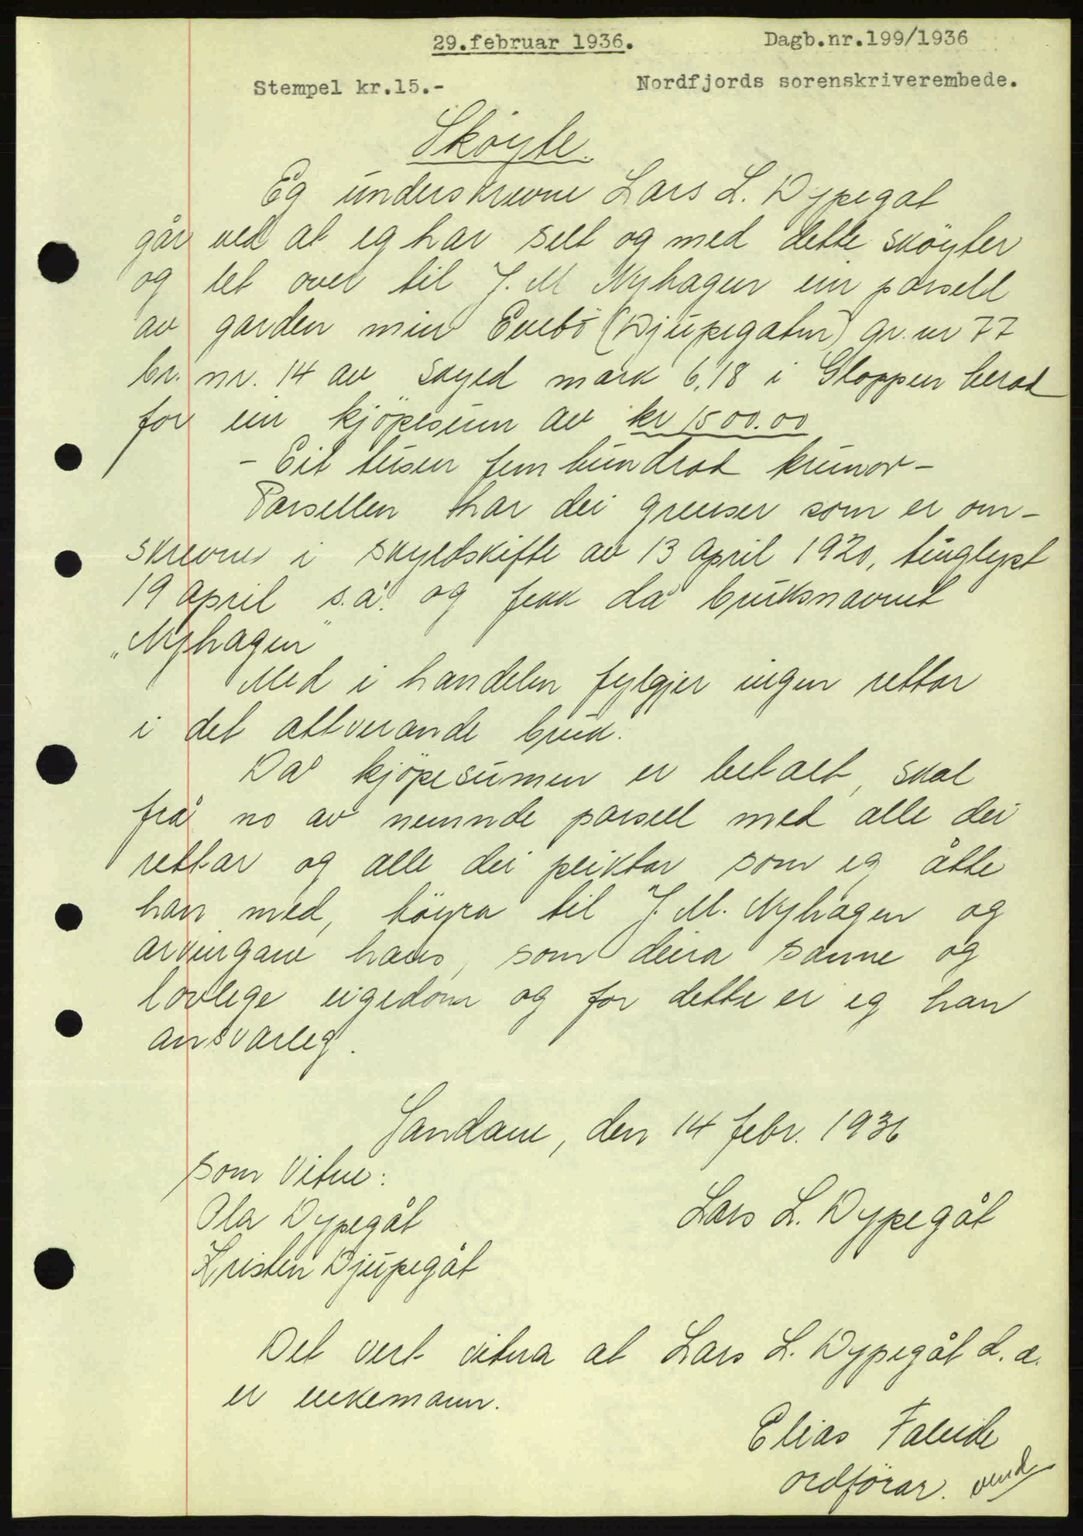 29.februar 1936. Dagb.nr.199/1936
Stempel kr.15.- Nordfjords sorenskriverembede.
Skøyte.
Eg underskrevne Lars L. Dypegat
går ved at eg har selt og med dette skøyter
og let over til J. M Nyhagen ein parsell
av garden min Evebø (Djupegaten) gr. nr 77
br. nr. 14 av skyld mark 6,18 i Gloppen herad
for ein kjøpesum av kr 1500.00
- Eit tusen fem hundrad krunor -
Parsellen har dei grenser som er om-
skrevne i skyldskifte av 13 april 1920, tinglyst
19 april s.å. og fekk då bruksnavnet
„Nyhagen"
Med i handelen fylgjer ingen rettar
i det attverande bruk.
Då kjøpesumen er betalt, skal
frå no av nemnde parsell med alle dei
rettar og alle dei pliktar som eg åtte
han med, høyra til J. M. Nyhagen og
arvingane hans, som deira sanne og
lovlege eigedom og for dette er eg han
ansvarleg.
Sandane, den 14 febr. 1936
Som Vitne:
Ola Dypegåt Lars L. Dypegåt
Kristen Djupegåt
Det vert vitna at Lars L. Dypegåt d. a.
er enkemann.
Elias Faleide
ordförar. vend